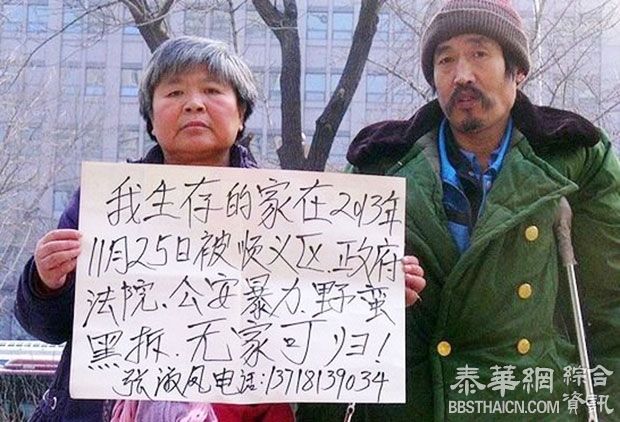 我生存的家在2013年
11月25日被顺义区.政府
法院、公安暴力.野蛮
黑拆.无家可归!
张淑凤电话:13718139034
泰華網 綜合資訊
BBSTHAICN.COM